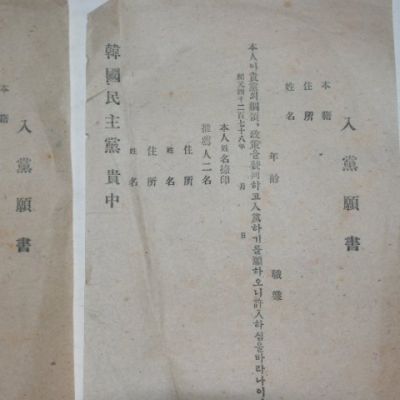 入黨願書
本籍
住所
姓名 年齡 職業
本人이 貴黨의 綱領、政策을 贊同하고 入黨하기를 願하오니 許入하심을 바라나이
紀元四千二百七十八年 月 日
本人姓名捺印
推薦人二名
住所
姓名
住所
姓名
韓國民主黨 貴中
入黨願書
本籍